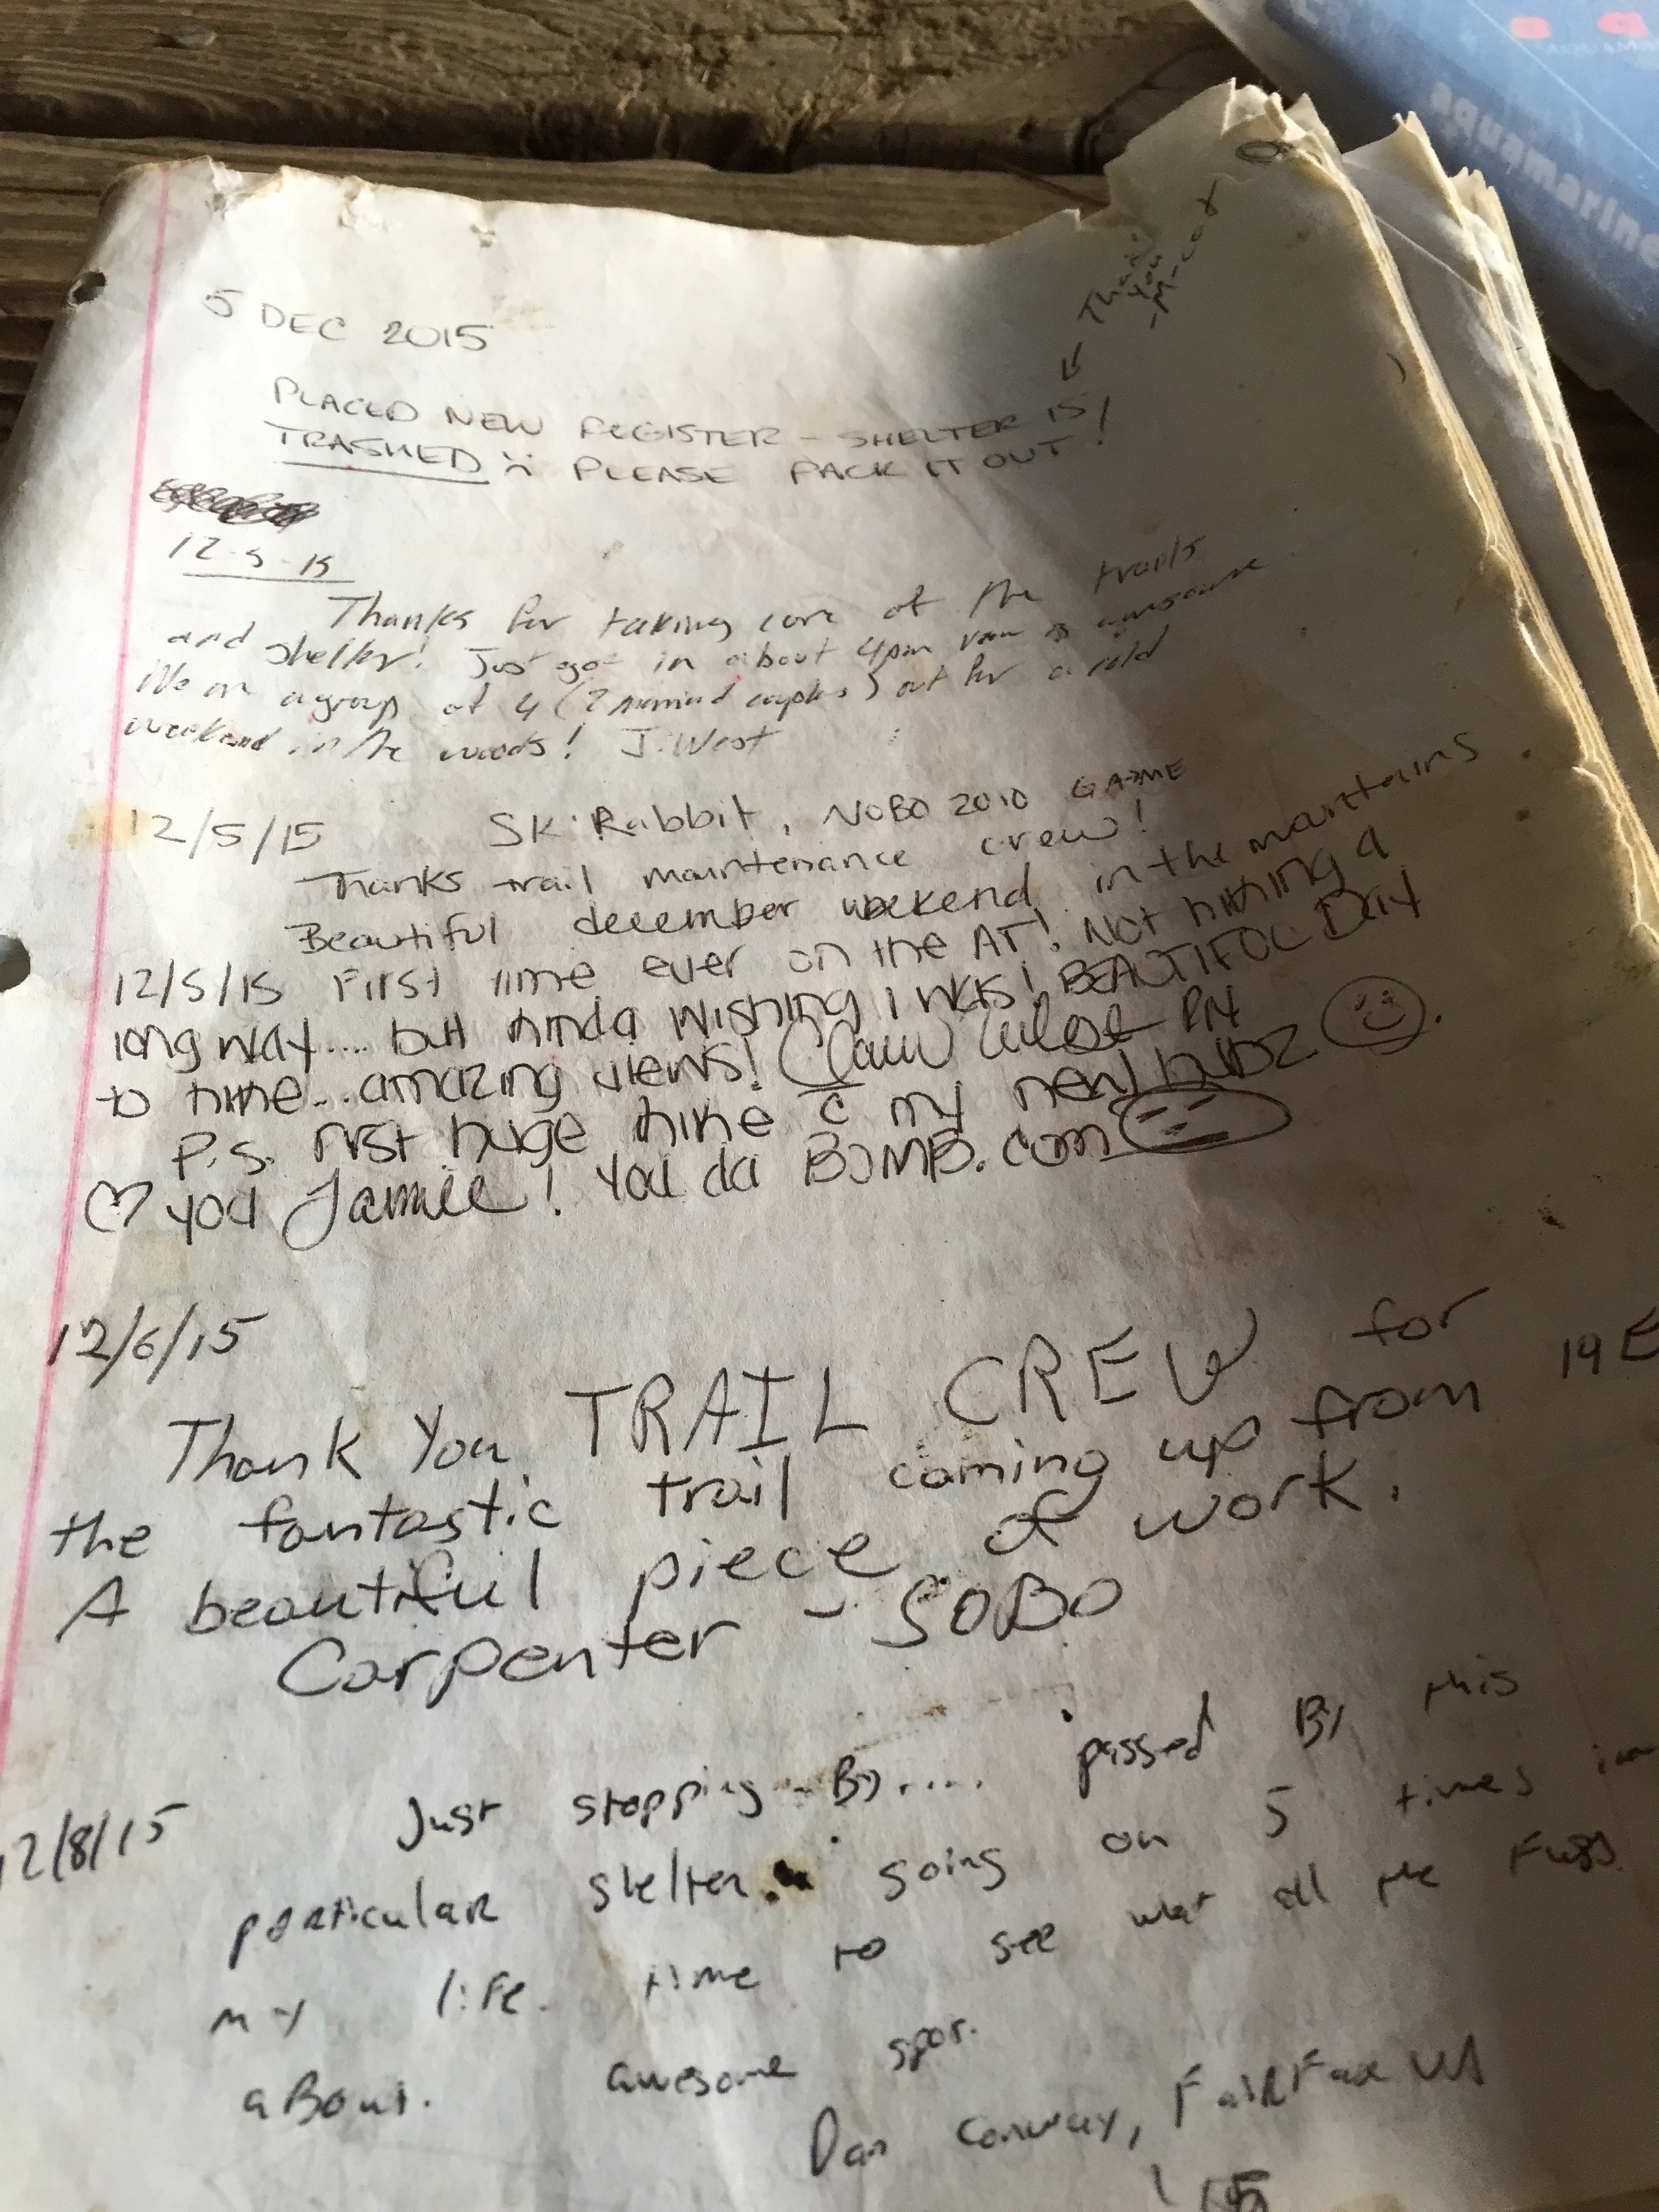 5 DEC 2015
Thank
you
-M-cat
PLACED NEW REGISTER - SHELTER IS
TRASHED :( PLEASE PACK IT OUT!
12-5-15
Thanks for taking care of the trails
and shelter! Just got in about 4pm view is awesome
We are a group of 4 (2 married couples) out for a cold
weekend in the woods! J. West
12/5/15 Rabbit, NOBO 2010 GA-ME
Thanks trail maintenance crew!
Beautiful december weekend in the mountains
12/5/15 First time ever on the AT! Not hiking a
long way.... but kinda wishing i was! BEAUTIFUL DAY
to hike... amazing views!
P.S. first huge hike c my new bubz.
♡ you Jamie! You da BOMB.com
12/6/15
Thank You TRAIL CREW for
the fantastic trail coming up from 19E
A beautiful piece of work.
Carpenter - SOBO
12/8/15 Just stopping - By.... passed By this
particular shelter going on 5 times in
my life. time to see what all the Fuss
aBout. awesome spot.
Dan Conway, FairFax VA